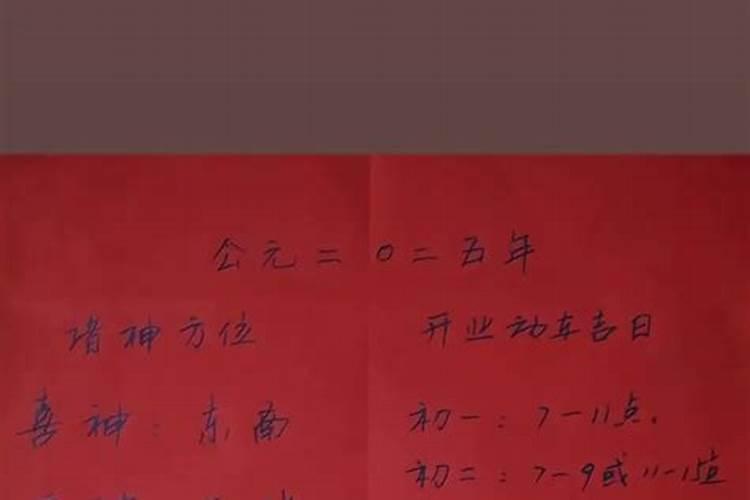 公元二〇二五年
诸神方位
喜神：东南
开业动车吉日
初一：7-11点.
初二：7-9或11-1点